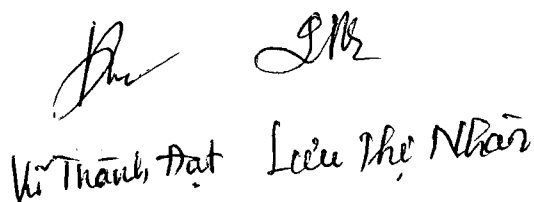 Vi Thành Đạt Lưu Thị Nhàn